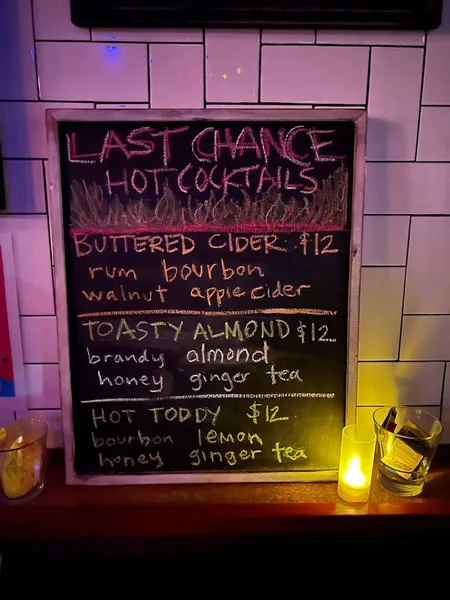 LAST CHANCE
HOT COCKTAILS
BUTTERED CIDER $12
rum bourbon
walnut apple cider
TOASTY ALMOND $12
brandy almond
honey ginger tea
HOT TODDY $12
bourbon lemon
honey ginger tea